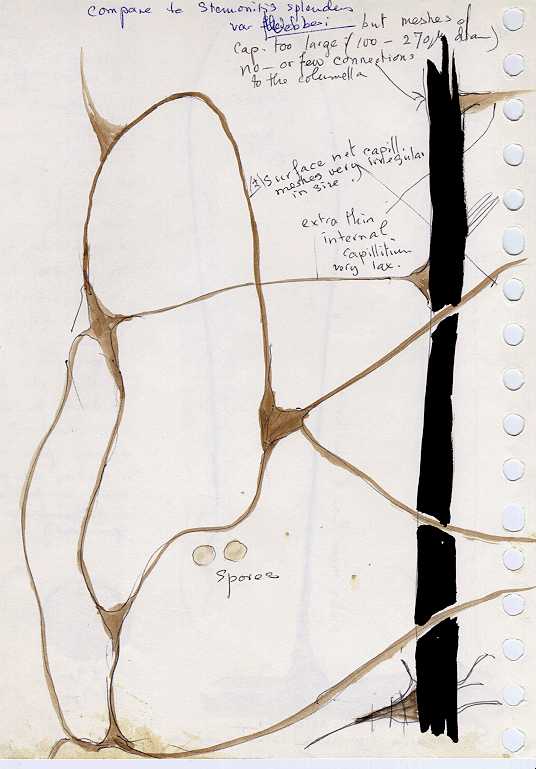 Compare to Stemonitis splendens
var Webberi but meshes of
Cap. too large (100 – 270 µ diam)
no – or few connections
to the columella
(±) Surface net capill.
meshes very irregular
in size.
extra thin
internal.
Capillitium
very lax.
Spores